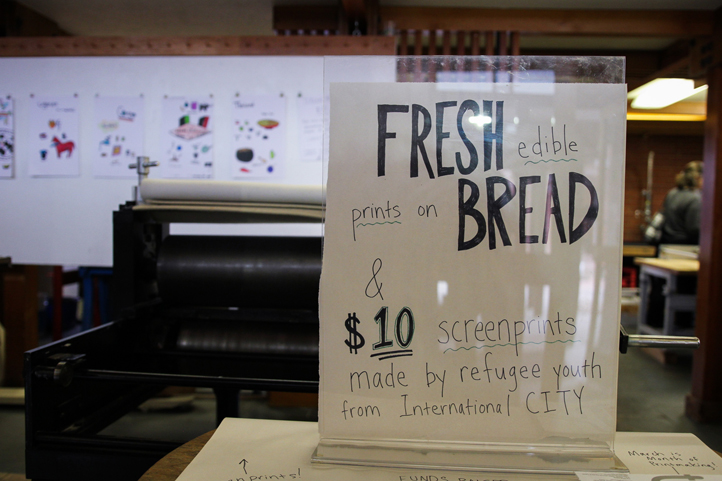 FRESH edible
prints on BREAD
&
$10 screenprints
made by refugee youth
from International CITY
March is
Month of
Printmaking!